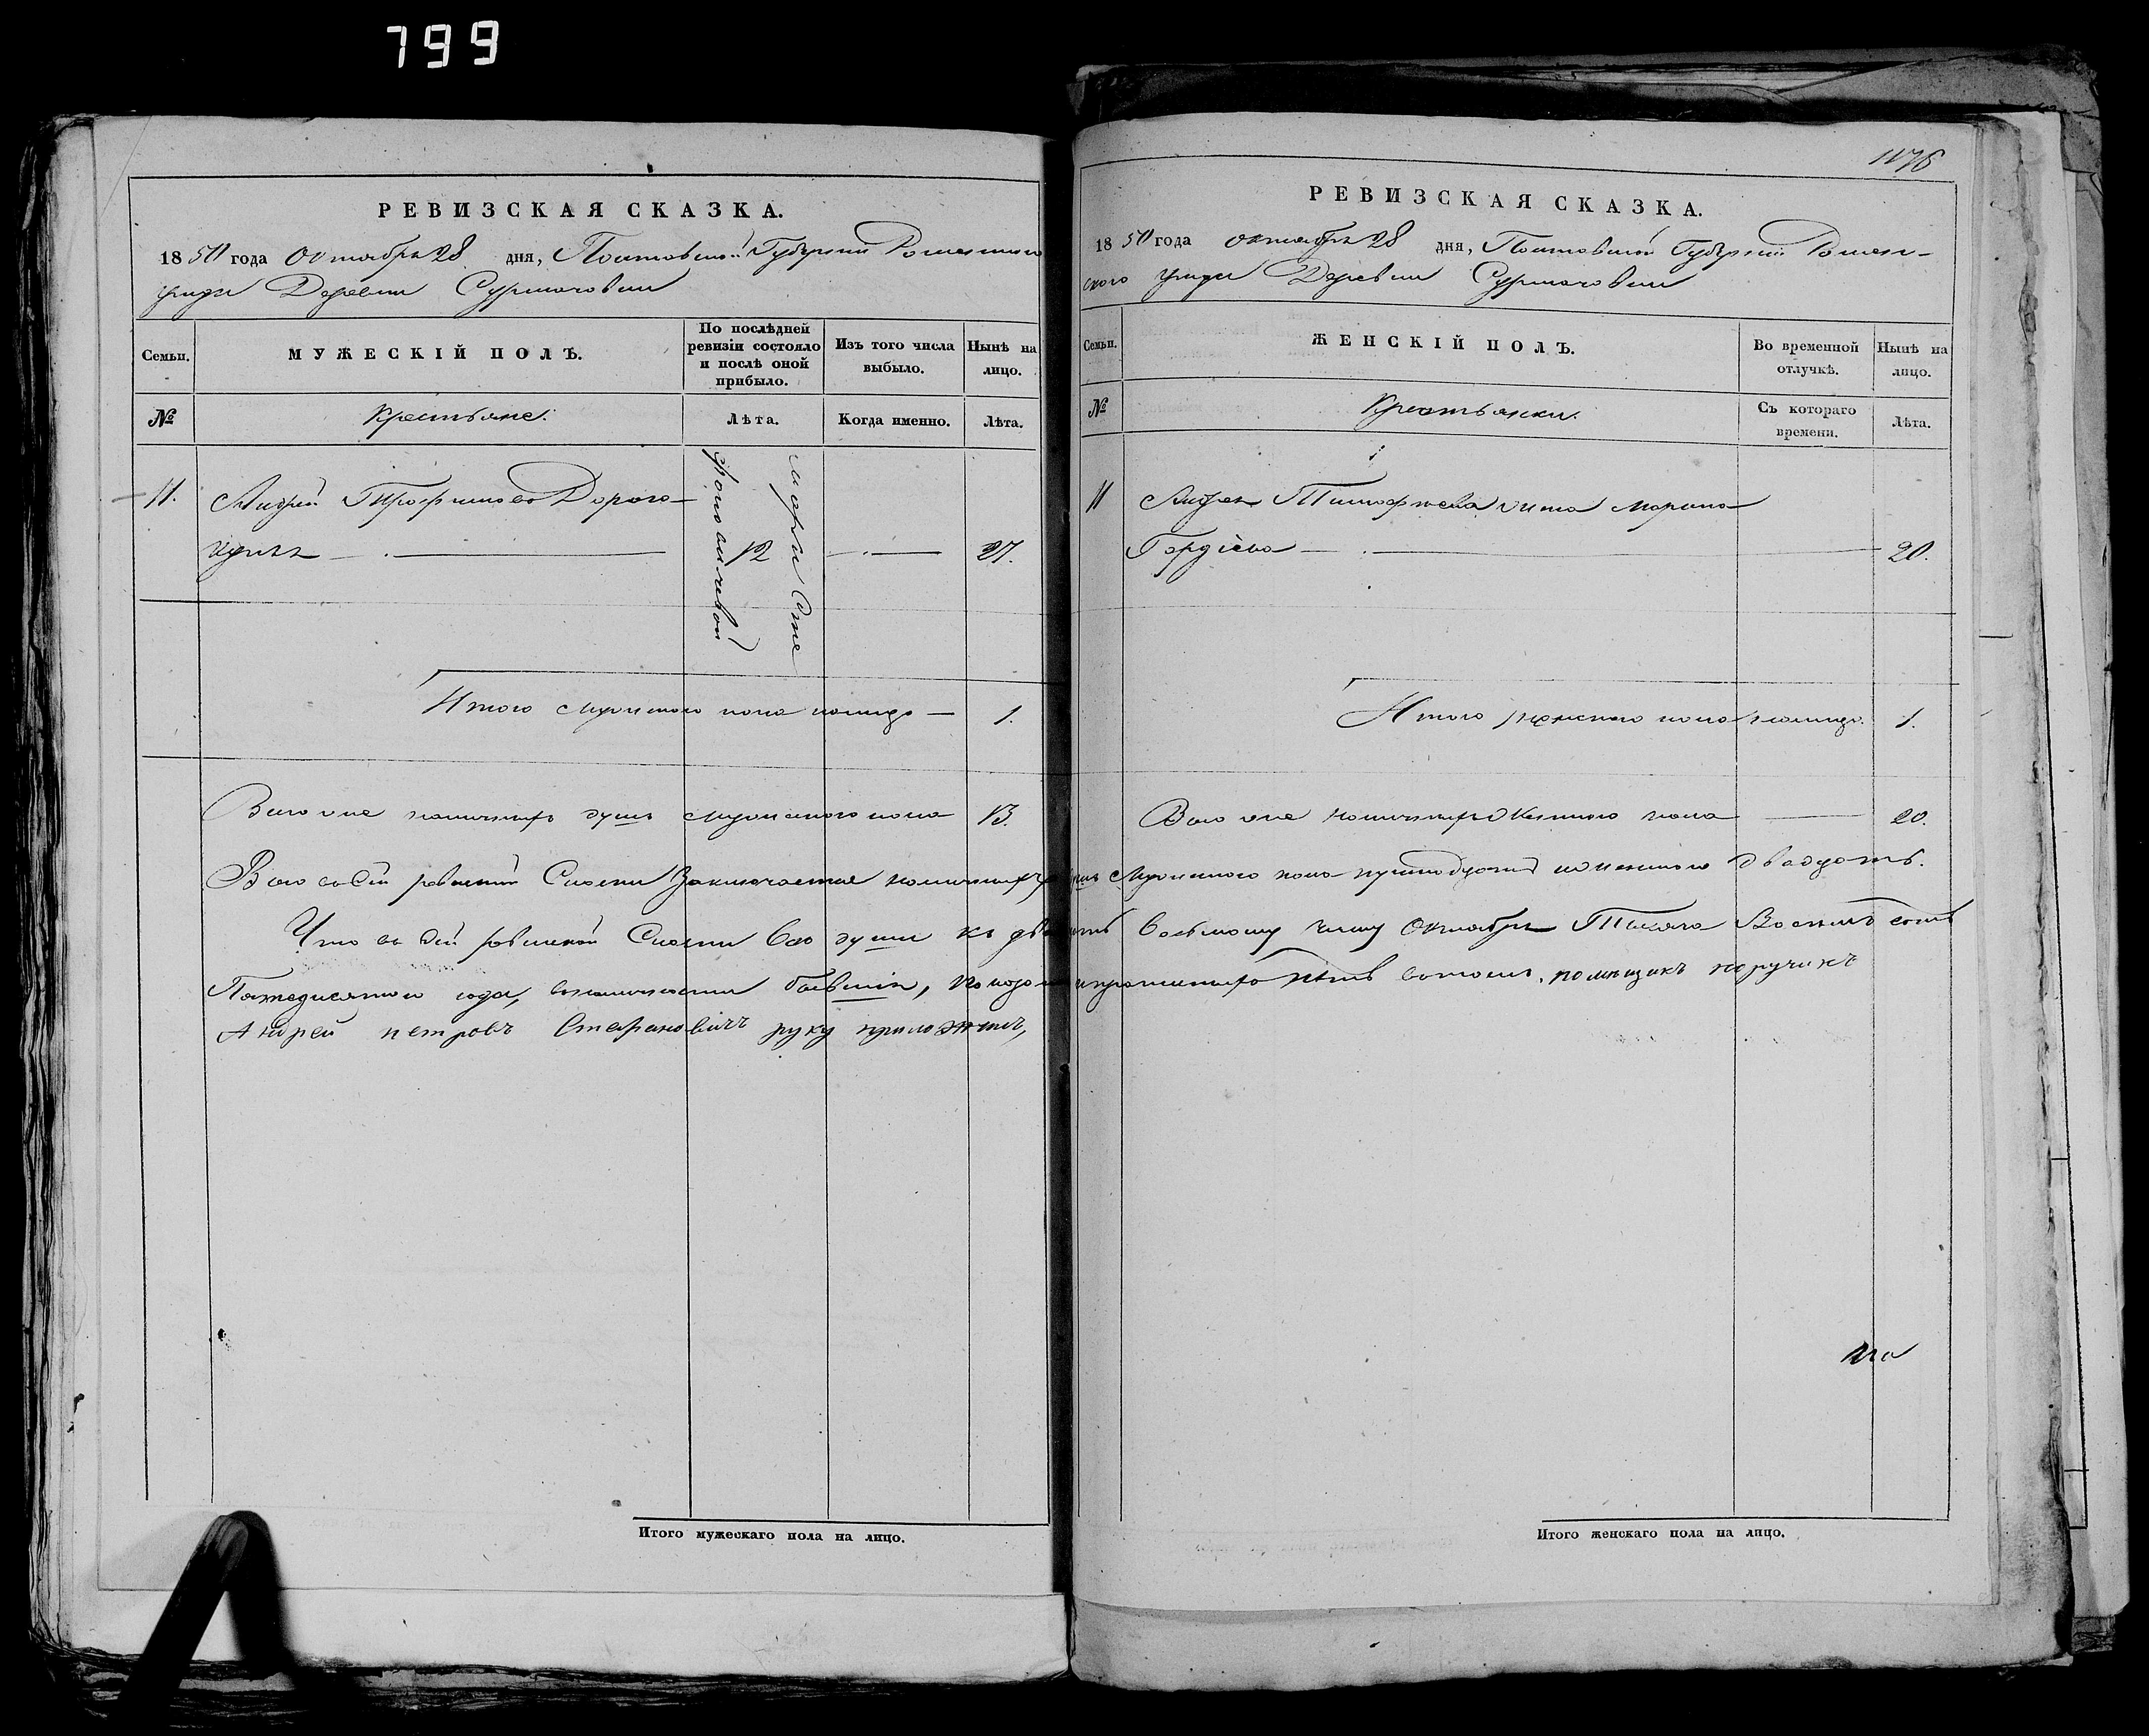 799
РЕВИЗСКАЯ СКАЗКА.
1850 года Октября 28 дня, Полтавской Губерніи Роменского
уезда Деревни Сурмачовки
Семьи.
МУЖЕСКІЙ ПОЛЪ.
По послѣдней ревизіи состояло и послѣ оной прибыло.
Изъ того числа выбыло.
Нынѣ на лицо.
№
Крестьяне.
Лѣта.
Когда именно.
Лѣта.
11. Андрей Трофимовъ Дорого-
12 27.
Итого мужеского пола налицо — 1.
Всего же наличныхъ душъ мужеского пола 13.
РЕВИЗСКАЯ СКАЗКА.
1850 года октября 28 дня, Полтавской Губерніи Ромен-
ского уезда Деревни Сурмачовки
Семьи.
ЖЕНСКІЙ ПОЛЪ.
Во временной отлучкѣ.
Нынѣ на лицо.
№
Крестьянки.
Съ котораго времени.
Лѣта.
11 Андрея жена Марина
Гордіева — 20.
Итого женского пола налицо. 1.
Всего же наличныхъ женского пола — 20.
Всего въ сей ревизской Сказки Заключается наличныхъ душъ Мужеского пола и женского двадцать.
Что въ сей ревизской Сказки все души къ двадцать восьмому числу Октября Тысяча Восемъ сотъ
Пятедисятого года, въ наличности бывшія, помѣщикъ поручикъ
Андрей петровъ Стефановичъ руку приложилъ,
Итого мужескаго пола на лицо.
Итого женскаго пола на лицо.